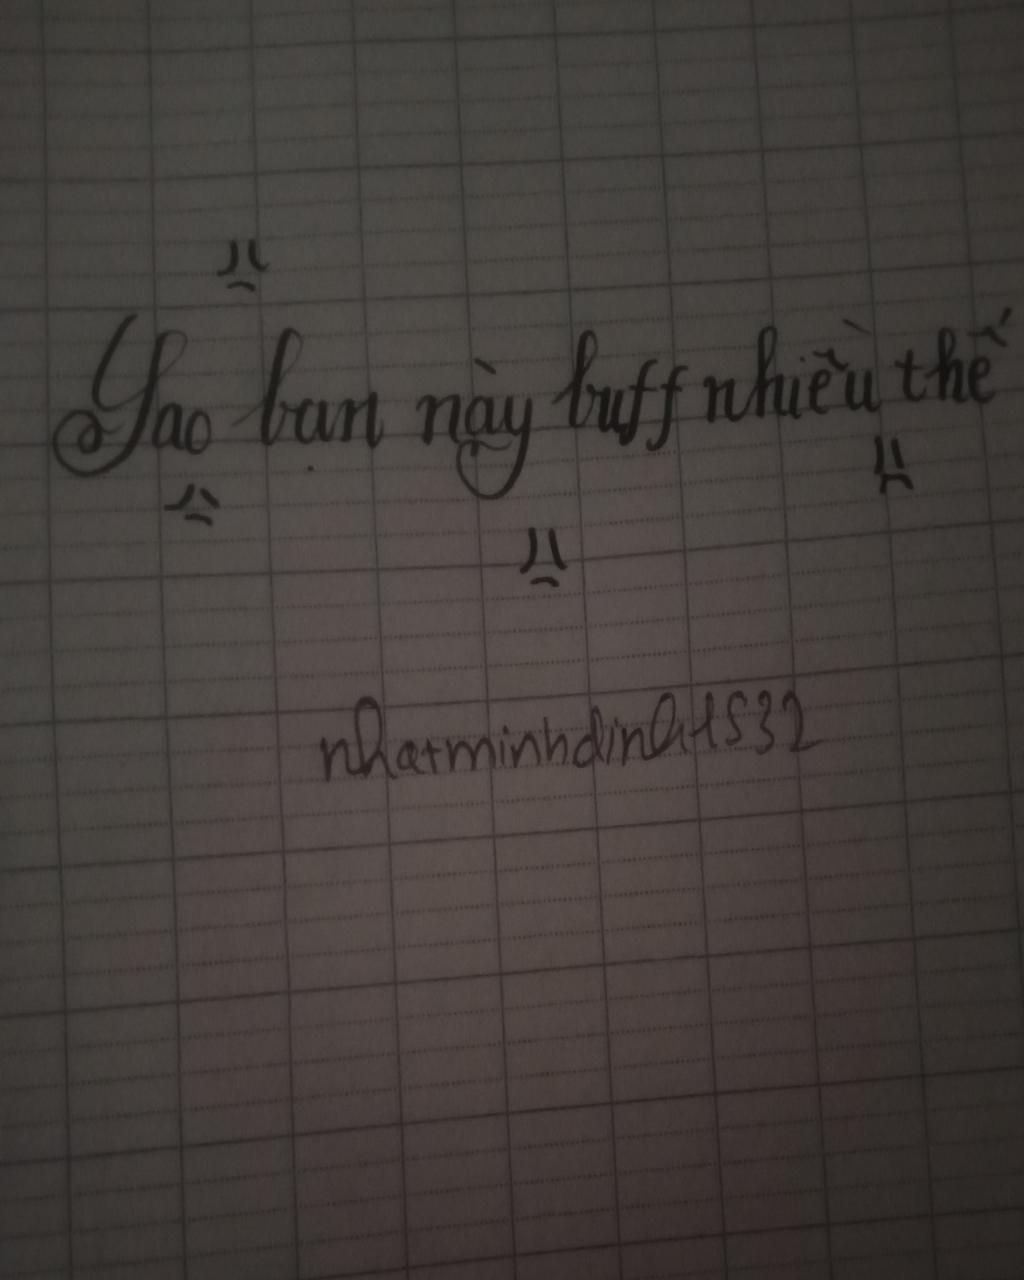 Sao bạn này buff nhiều thế
nhatminhdinh1532